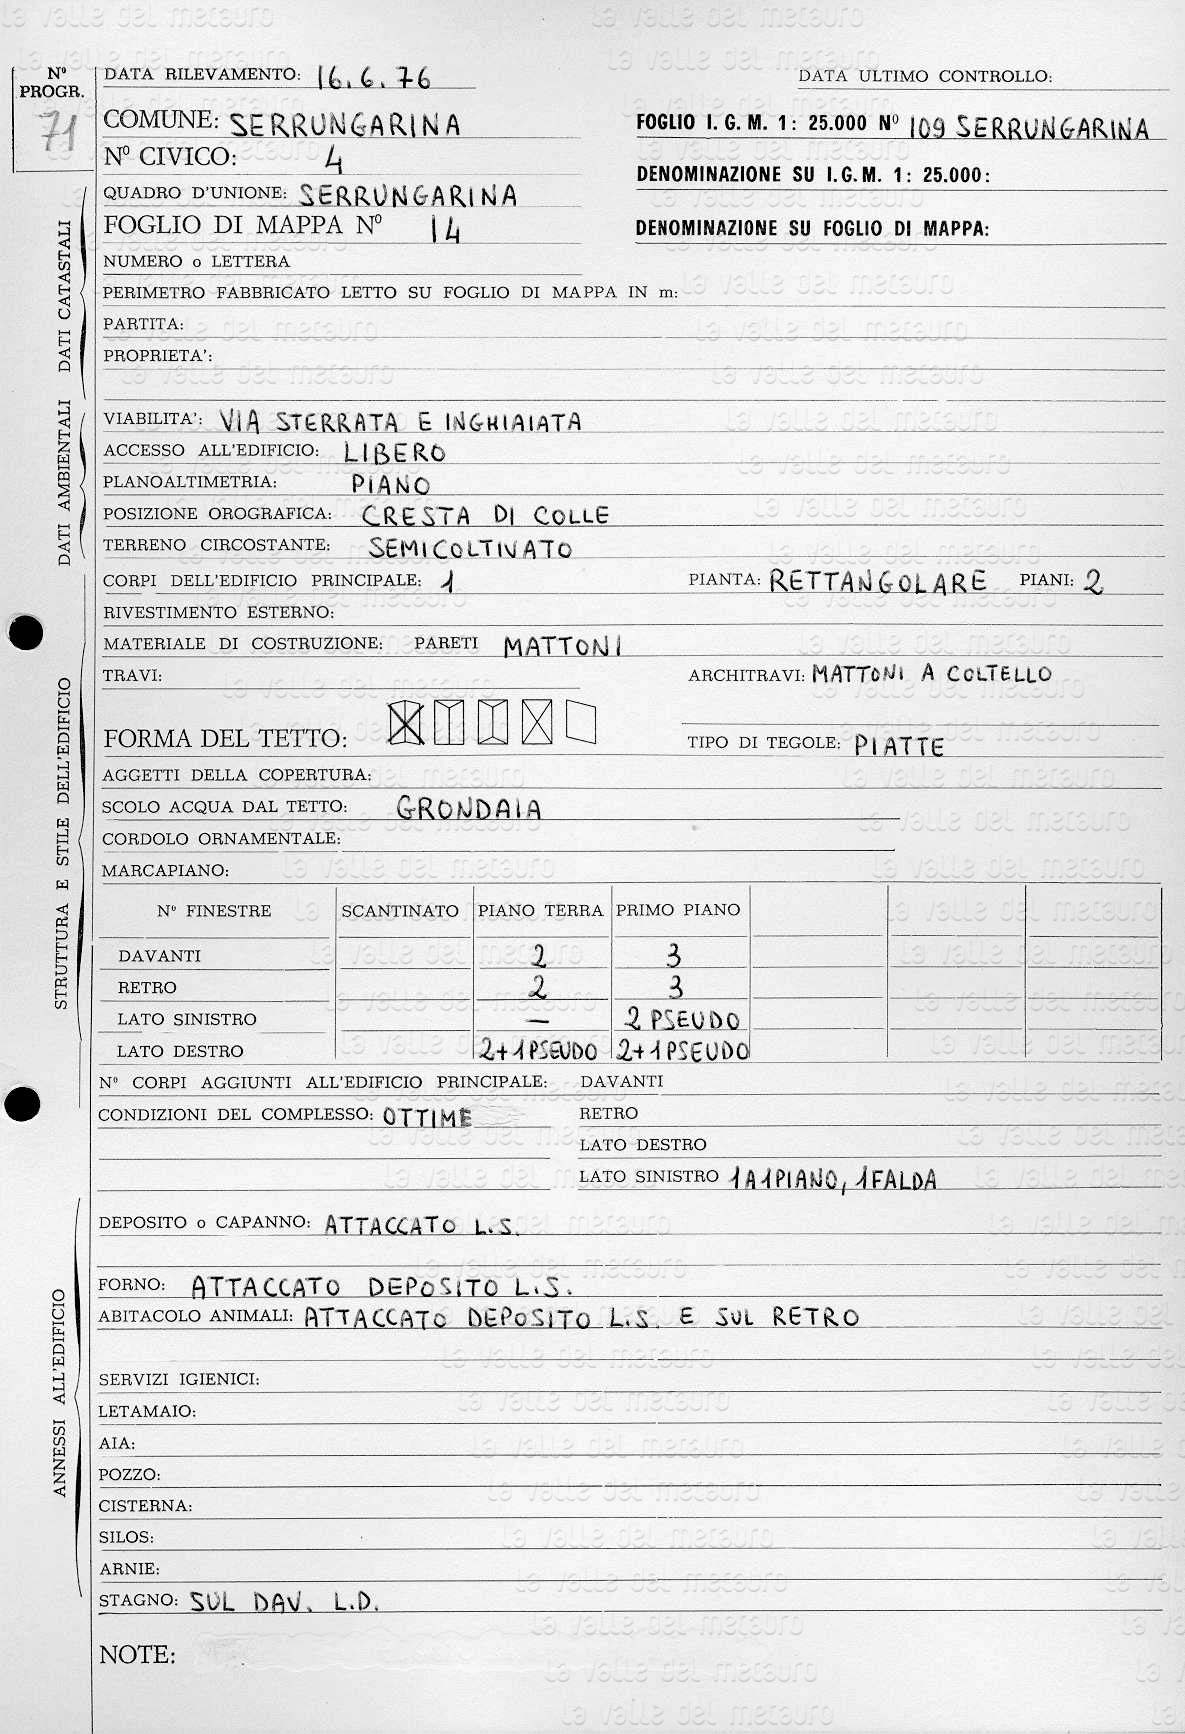 Nº PROGR. 71
DATA RILEVAMENTO: 16.6.76
DATA ULTIMO CONTROLLO:
COMUNE: SERRUNGARINA
FOGLIO I. G. M. 1: 25.000 Nº 109 SERRUNGARINA
Nº CIVICO: 4
DENOMINAZIONE SU I.G.M. 1: 25.000:
QUADRO D'UNIONE: SERRUNGARINA
FOGLIO DI MAPPA Nº 14
DENOMINAZIONE SU FOGLIO DI MAPPA:
DATI CATASTALI
NUMERO o LETTERA
PERIMETRO FABBRICATO LETTO SU FOGLIO DI MAPPA IN m:
PARTITA:
PROPRIETA':
DATI AMBIENTALI
VIABILITA': VIA STERRATA E INGHIAIATA
ACCESSO ALL'EDIFICIO: LIBERO
PLANOALTIMETRIA: PIANO
POSIZIONE OROGRAFICA: CRESTA DI COLLE
TERRENO CIRCOSTANTE: SEMICOLTIVATO
STRUTTURA E STILE DELL'EDIFICIO
CORPI DELL'EDIFICIO PRINCIPALE: 1 PIANTA: RETTANGOLARE PIANI: 2
RIVESTIMENTO ESTERNO:
MATERIALE DI COSTRUZIONE: PARETI MATTONI
TRAVI: ARCHITRAVI: MATTONI A COLTELLO
FORMA DEL TETTO: TIPO DI TEGOLE: PIATTE
AGGETTI DELLA COPERTURA:
SCOLO ACQUA DAL TETTO: GRONDAIA
CORDOLO ORNAMENTALE:
MARCAPIANO:
Nº FINESTRE SCANTINATO PIANO TERRA PRIMO PIANO
DAVANTI 2 3
RETRO 2 3
LATO SINISTRO — 2 PSEUDO
LATO DESTRO 2+1PSEUDO 2+1PSEUDO
Nº CORPI AGGIUNTI ALL'EDIFICIO PRINCIPALE: DAVANTI
CONDIZIONI DEL COMPLESSO: OTTIME RETRO
LATO DESTRO
LATO SINISTRO 1A1PIANO, 1FALDA
ANNESSI ALL'EDIFICIO
DEPOSITO o CAPANNO: ATTACCATO L.S.
FORNO: ATTACCATO DEPOSITO L.S.
ABITACOLO ANIMALI: ATTACCATO DEPOSITO L.S. E SUL RETRO
SERVIZI IGIENICI:
LETAMAIO:
AIA:
POZZO:
CISTERNA:
SILOS:
ARNIE:
STAGNO: SUL DAV. L.D.
NOTE:
la valle del metauro